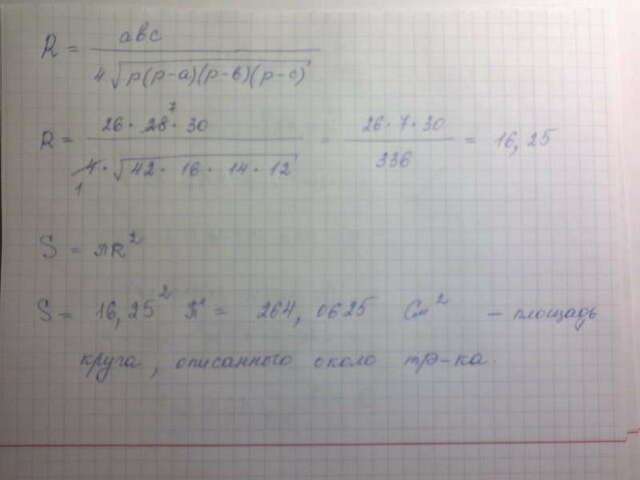 R = abc / 4√p(p-a)(p-в)(p-c)
R = 26 · 28 7 · 30 / 4 1 · √42 · 16 · 14 · 12 = 26 · 7 · 30 / 336 = 16,25
S = πR²
S = 16,25² π = 264,0625 См² – площадь
круга, описанного около тр-ка.